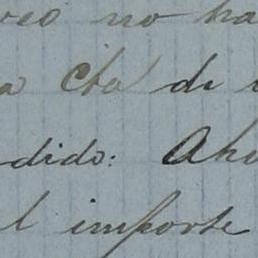 reo no ha
a Cta de
dido: Aho
l importe